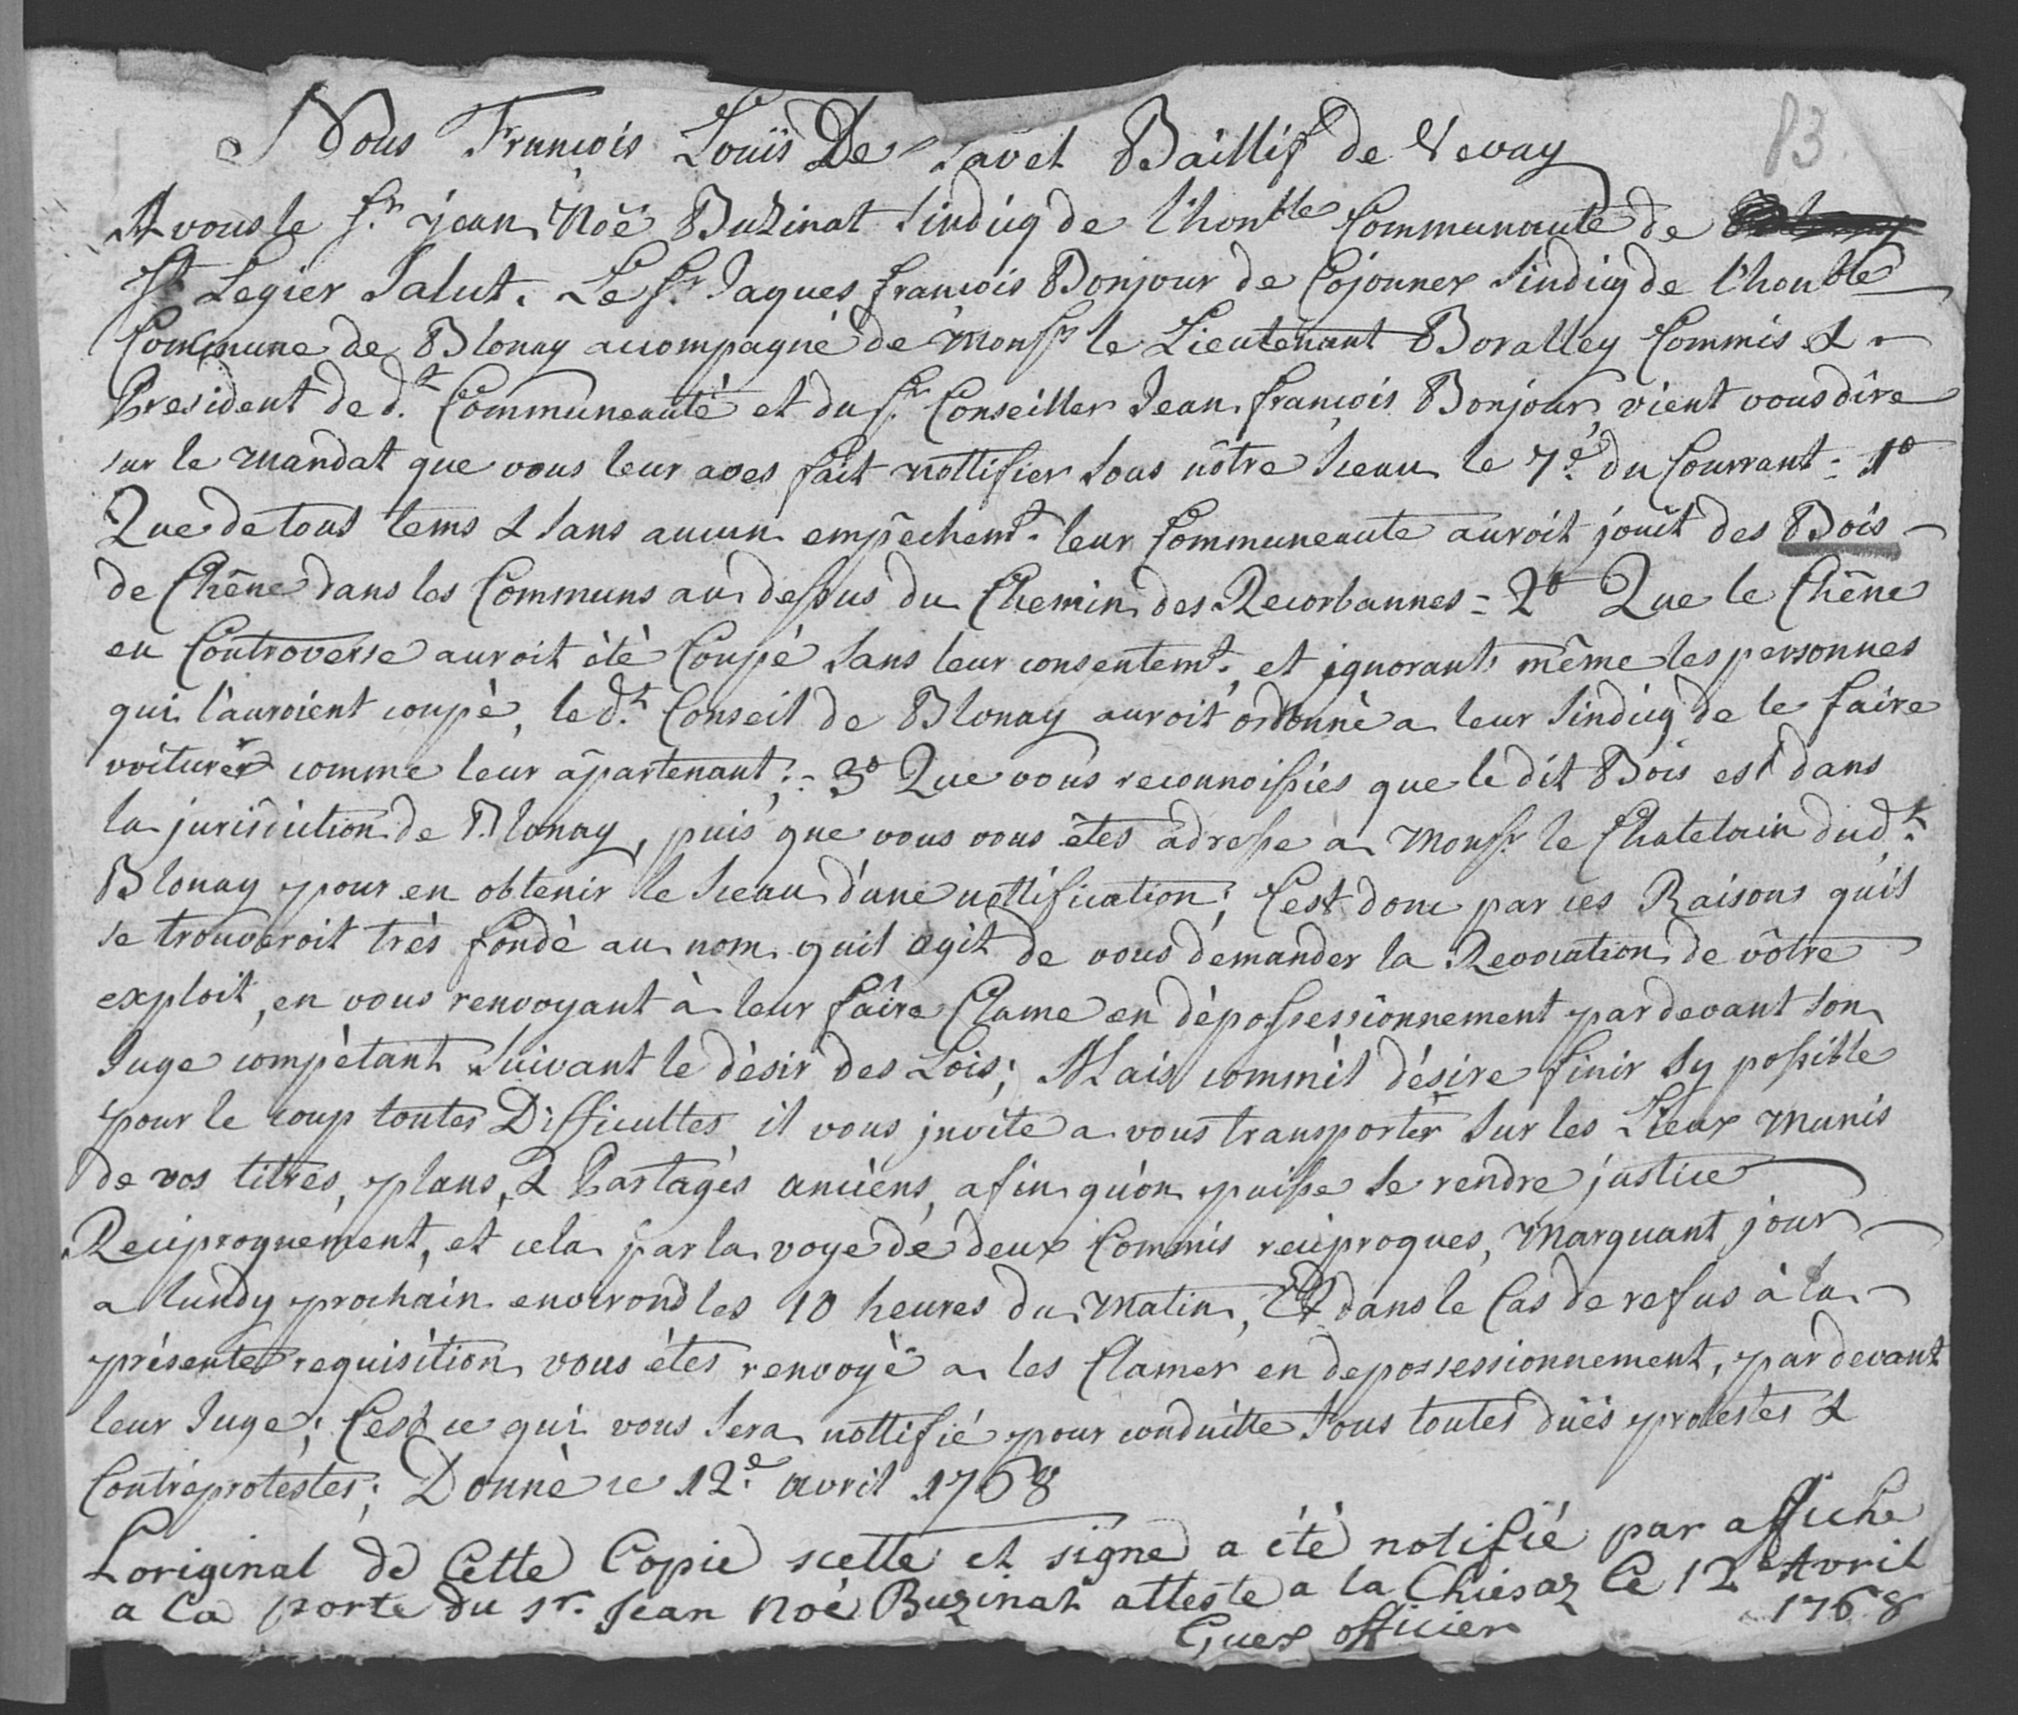 83.
Nous François Louïs De Tavel Baillif de Vevay
A vous le Sr. jean Noé Buzinat Sindicq de l'honble Communauté de
St Legier Salut. Le Sr. Jaques françois Bonjour de Cojonnex Sindicq de l'honble
Commune de Blonay accompagné de Monsr le Lieutenant Boralley Commis &
President de d.t Communeauté et du Sr. Conseiller Jean françois Bonjour, vient vous dire
sur le Mandat que vous leur aves fait nottifier sous nôtre Sceau le 7e. du Courrant = 1o
Que de tous tems & sans aucun empêchemt. leur Communeaute auroit jouït des Bois
de Chêne dans les Communs au dessus du Chemin des Recorbannes = 2o Que le Chêne
en Controverse auroit été Coupé sans leur consentemt. et ignorant même les personnes
qui l'auroient coupé, le d.t Conseil de Blonay auroit ordonné a leur Sindicq de le faire
voiturer comme leur apartenant; = 3o Que vous reconnoissiés que le dit Bois est dans
la jurisdiction de Blonay, puis que vous vous êtes adresse a Monsr. le Chatelain dud.t
Blonay pour en obtenir le Sceau d'une nottification; C'est donc par ces Raisons qu'il
se trouveroit très fondé au nom quil agit de vous demander la Revocation de vôtre
exploit, en vous renvoyant à leur faire Clame en dépossessionnement par devant son
Juge compètant suivant le désir des Lois; Mais comm'il désire finir sy possible
pour le coup toutes Difficultes il vous jnvite a vous transporter sur les Lieux munis
de vos titres, plans, & Partages anciens, afin qu'on puisse se rendre justice
Reciproquement, et cela par la voye de deux Commis reciproques, Marquant jour
a lundy prochain environd les 10 heures du Matin, Et dans le Cas de refus à la
présente requisition vous étes renvoyé a les Clamer en depossessionnement, par devant
leur Juge; C'est ce qui vous sera nottifié pour conduitte sous toutes duës protestes &
Contreprotestes; Donné ce 12e. avril 1768
L'original de Cette Copie scellé et signé a été notifié par affiche
a la porte du sr. Jean Noé Buzinat atteste a la Chiesaz Ce 12e Avril
1768
Guex officier